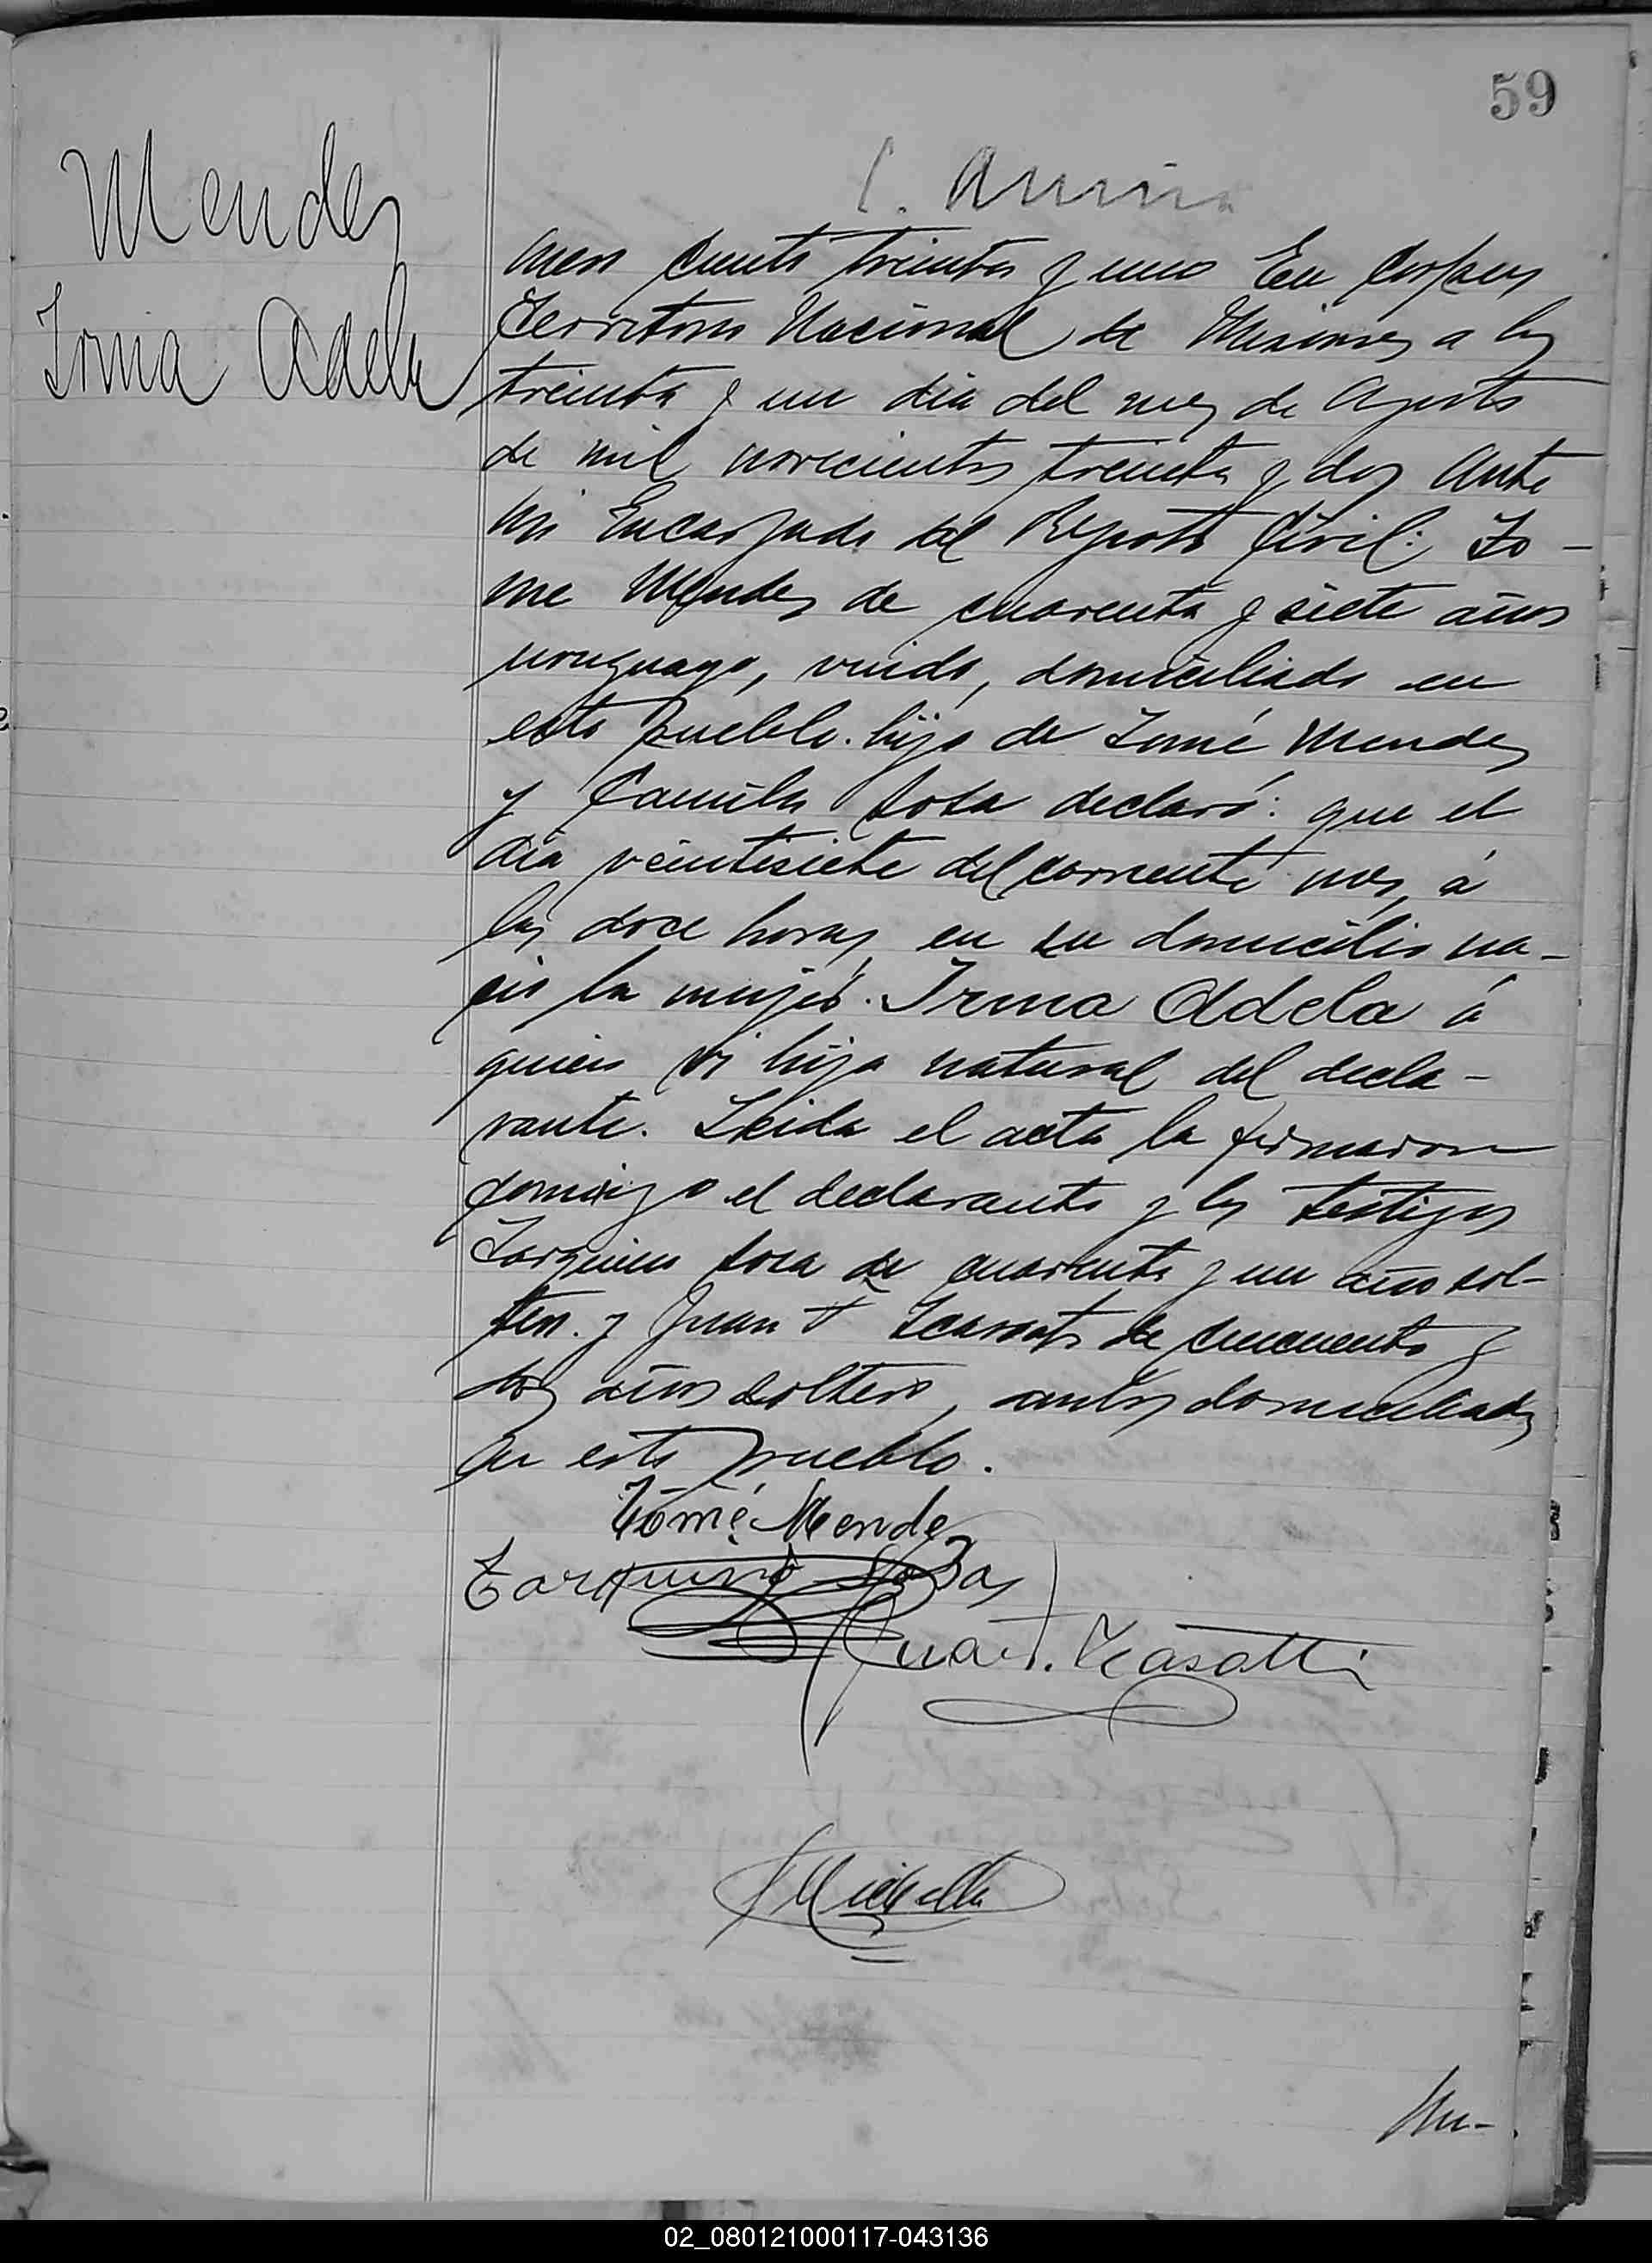 59
Mendez
Irma Adela
mero ciento treinta y uno En Corpus
Territorio Nacional de Misiones a los
treinta y un dia del mes de Agosto
de mil novecientos treinta y dos Ante
mi Encargado del Registro Civil: To-
me Mendez de cuarenta y siete años
uruguayo, viudo, domiciliado en
este pueblo. hijo de Tomé Mendez
y Camila Sosa declaró: que el
dia veintisiete del corriente mes, á
las doce horas, en su domicilio na-
cio la mujer. Irma Adela á
quien vi hija natural del decla-
rante. Leida el acta la firmaron
conmigo el declarante y los testigos
Tarquino Sosa de cuarenta y un año sol-
tero. y Juan T de cincuenta y
dos años soltero, ambos domiciliados
en este pueblo.
Tomé Mendez
Tarquino Sosa
Juan T.
Nu-
02_080121000117-043136